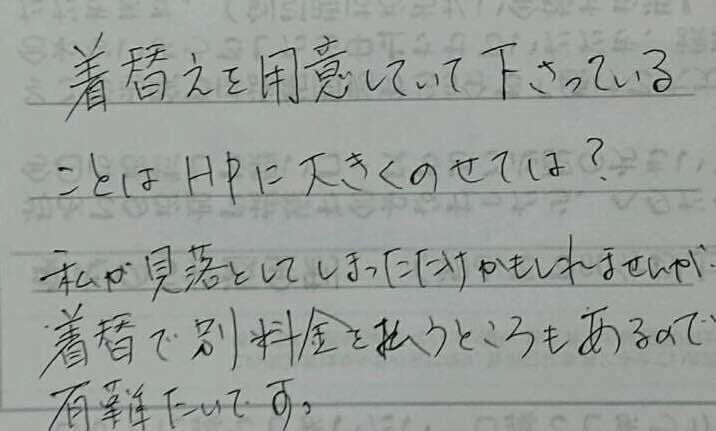 着替えを用意していて下さっている
ことはHPに大きくのせては?
私が見落としてしまっただけかもしれませんが、
着替で別料金を払うところもあるので
有難たいです。